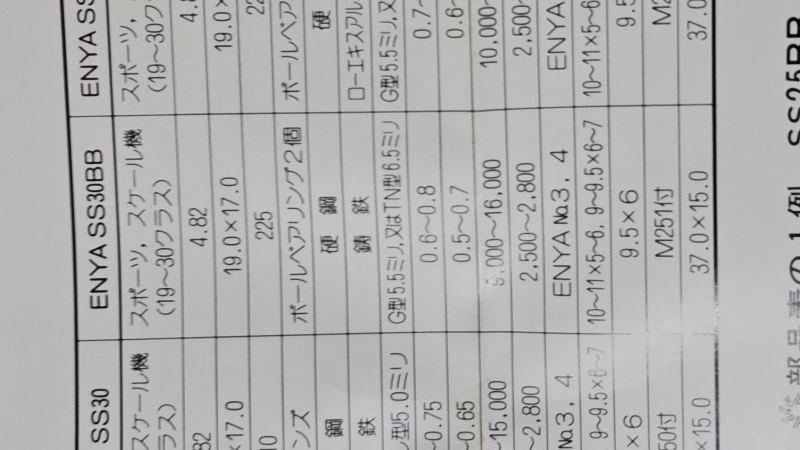 SS30 ENYA SS30BB ENYA SS
スケール機 スポーツ, スケール機 スポーツ,
ラス) (19〜30クラス) (19〜30クラ
82 4.82 4.8
×17.0 19.0×17.0 19.0×
10 225 22
ンズ ボールベアリング2個 ボールベア
鋼 硬 鋼 硬
鉄 鋳 鉄 ローエキスアル
型5.0ミリ G型5.5ミリ,又はTN型6.5ミリ G型5.5ミリ,又
〜0.75 0.6〜0.8 0.7〜
〜0.65 0.5〜0.7 0.6〜
〜15,000 9,000〜16,000 10,000〜
〜2,800 2,500〜2,800 2,500〜
No.3, 4 ENYA No.3, 4 ENYA
9〜9.5×6〜7 10〜11×5〜6, 9〜9.5×6〜7 10〜11×5〜6
×6 9.5×6 9.5
50付 M251付 M2
×15.0 37.0×15.0 37.0
部品表の1例 SS25BB